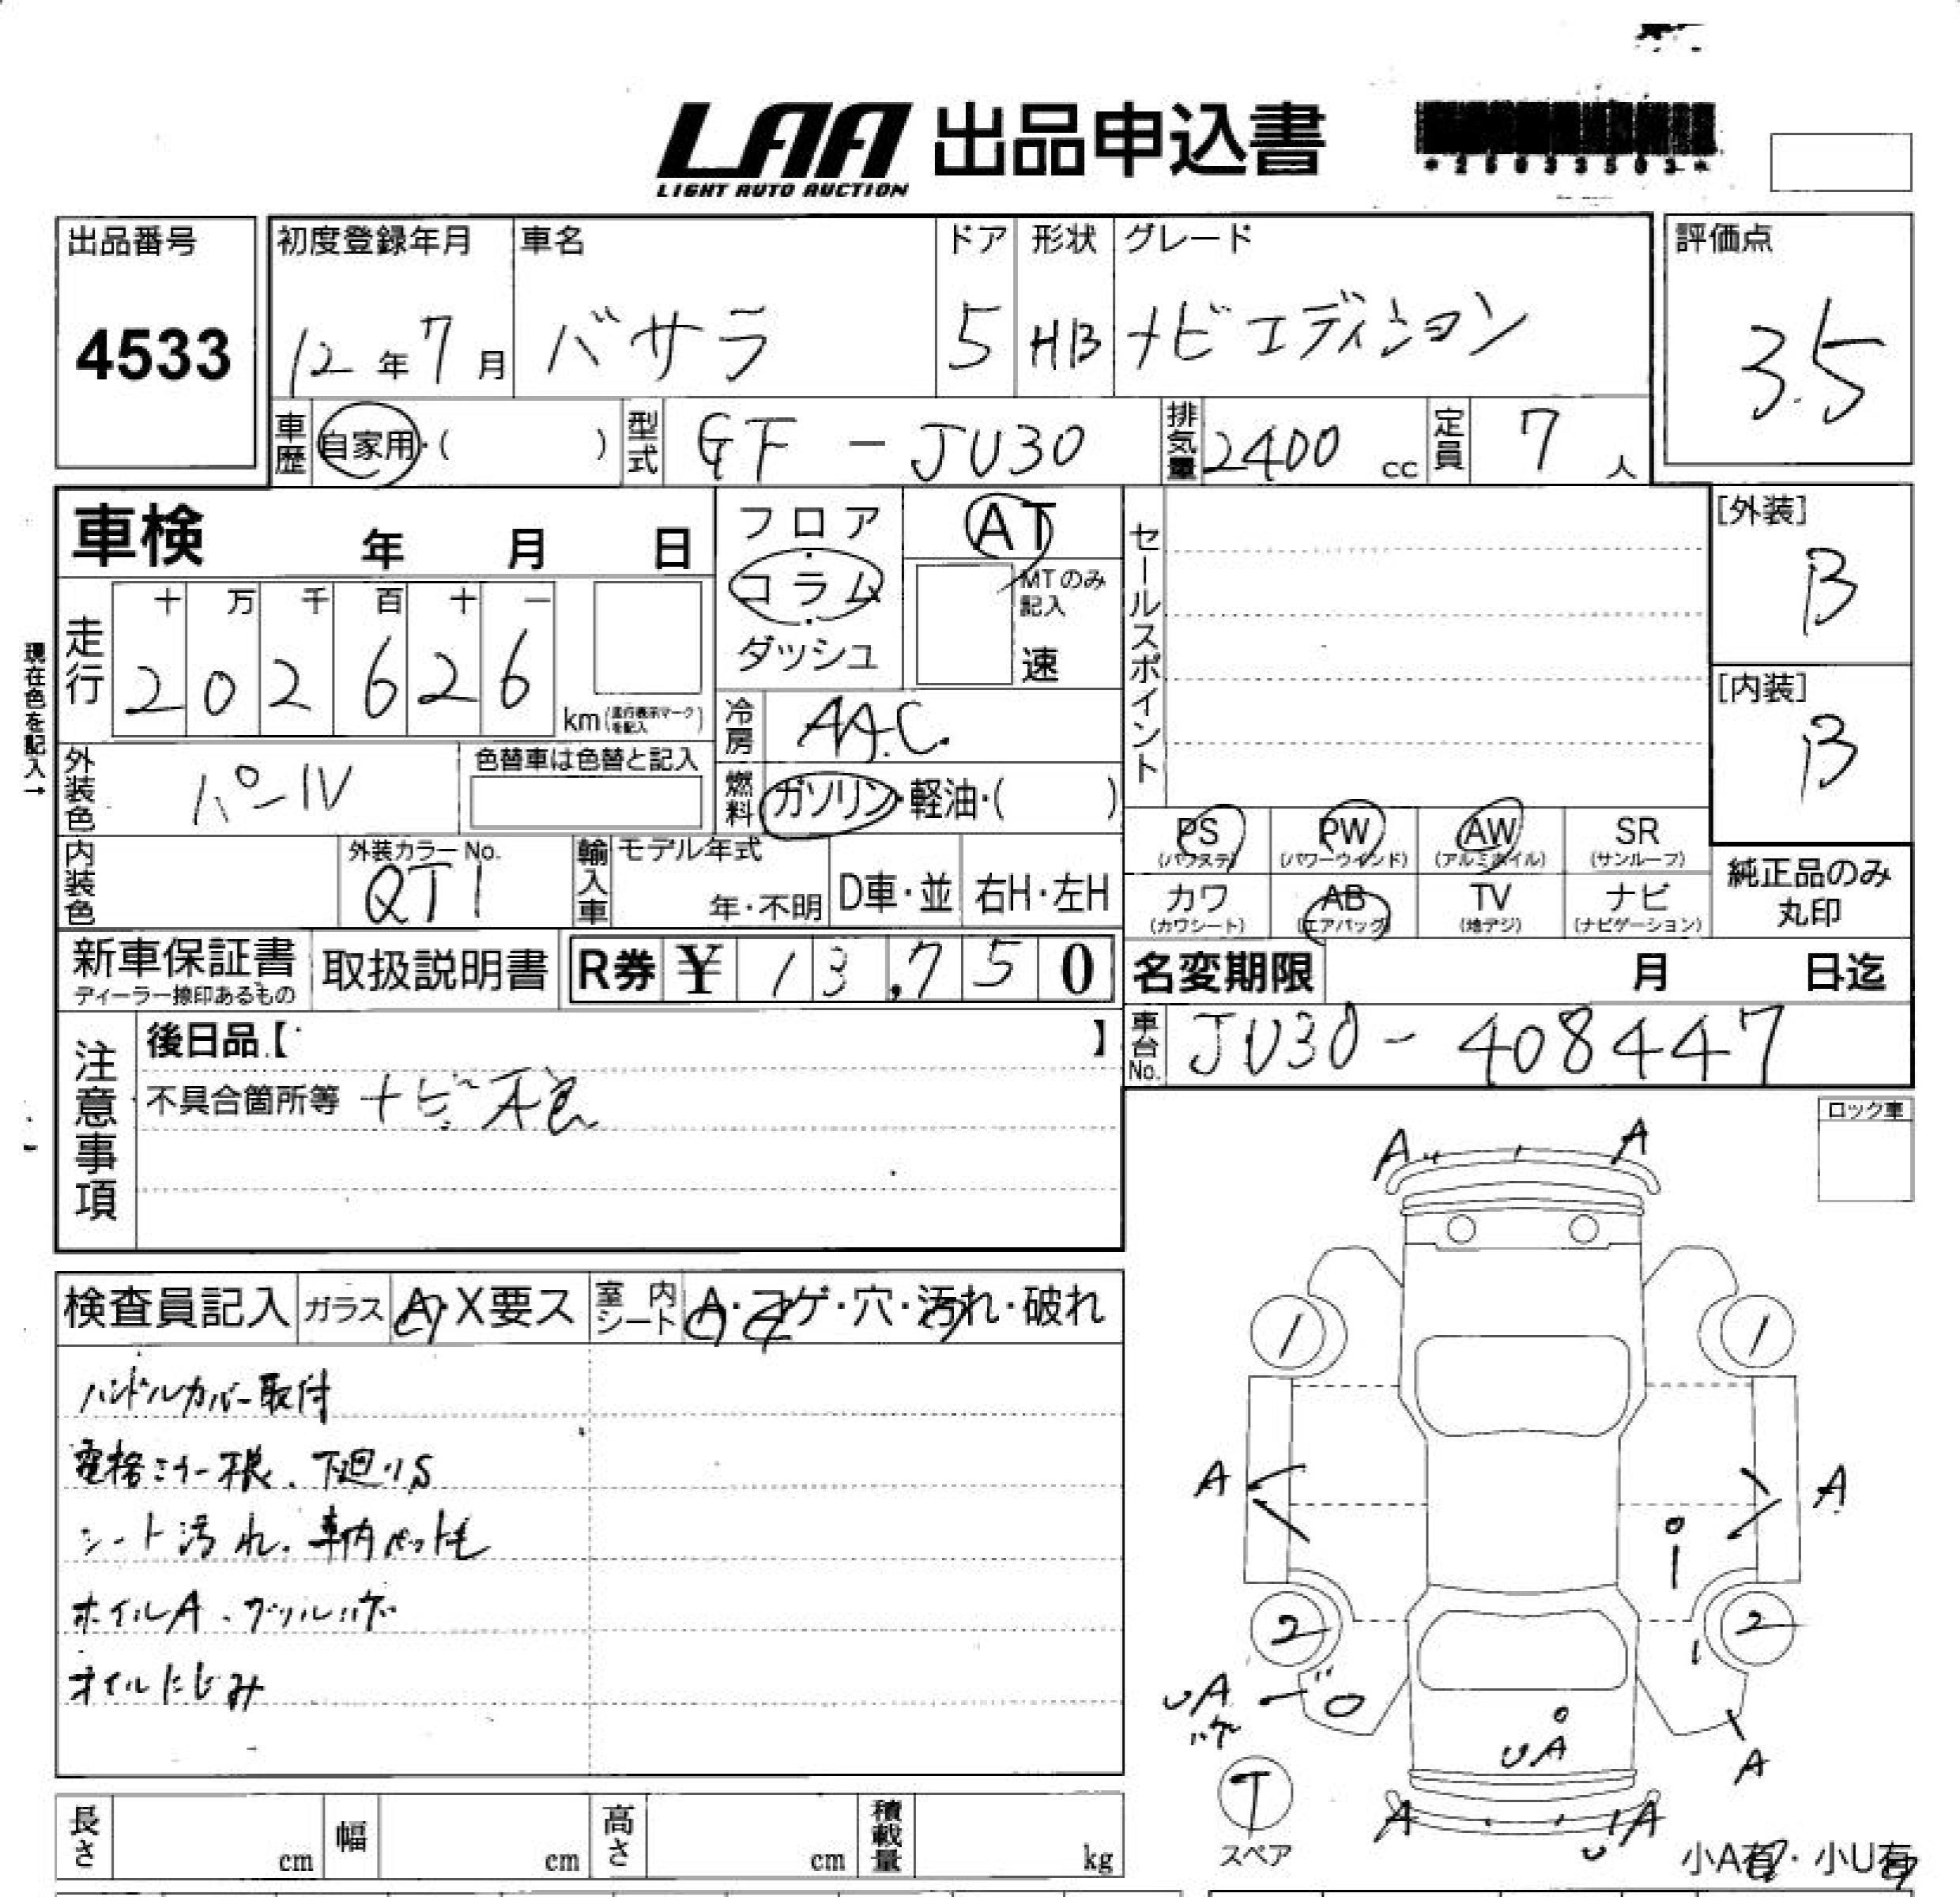 LAA 出品申込書
LIGHT AUTO AUCTION
出品番号
4533
初度登録年月
12年7月
車名
バサラ
ドア
5
形状
HB
グレード
ナビエディション
評価点
3.5
車歴 自家用・( )
型式 GF-JU30
排気量 2400 cc
定員 7人
車検 年 月 日
フロア・コラム・ダッシュ
AT
MTのみ記入
速
セールスポイント
[外装]
B
[内装]
B
現在色を記入→
走行
十 万 千 百 十 一
2 0 2 6 2 6
km(走行表示マークを記入)
冷房 AAC.
外装色 パール
色替車は色替と記入
燃料 ガソリン・軽油・( )
内装色
外装カラーNo.
QT1
輸入車
モデル年式
年・不明
D車・並
右H・左H
PS(パワステ)
PW(パワーウインド)
AW(アルミホイル)
SR(サンルーフ)
カワ(カワシート)
AB(エアバッグ)
TV(地デジ)
ナビ(ナビゲーション)
純正品のみ丸印
新車保証書
ディーラー捺印あるもの
取扱説明書
R券 ¥ 13,750
名変期限 月 日迄
車台No. JU30-408447
注意事項
後日品【 】
不具合箇所等 ナビ不良
ロック車
A A
1 1
A A
2 2
UA
UA
A
T
スペア
A UA
小A有・小U有
検査員記入
ガラス A・X要ス
室内シート A・コゲ・穴・汚れ・破れ
ハンドルカバー取付
電格ミラー 下廻りS
シート汚れ. 車内ペット毛
ホイルA.
オイルにじみ
長さ cm
幅 cm
高さ cm
積載量 kg